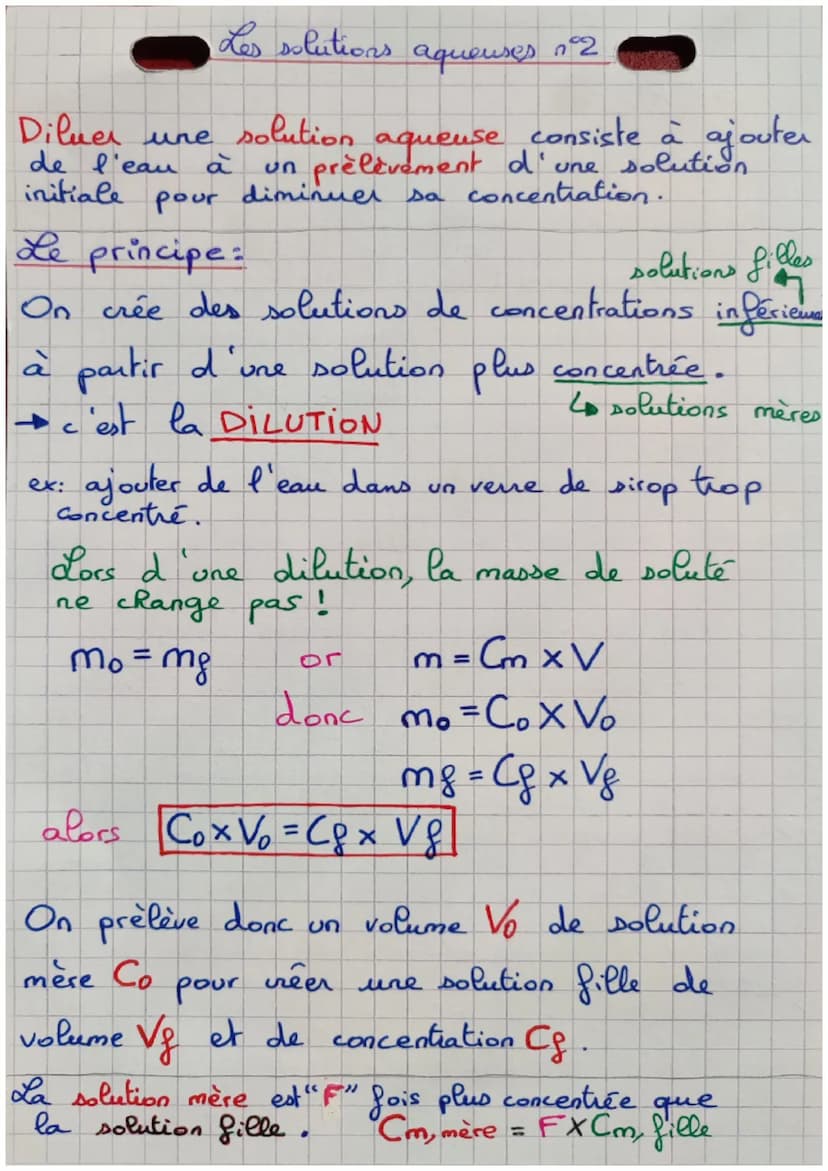 Les solutions aqueuses n°2
Diluer une solution aqueuse consiste à ajouter
de l'eau à un prèlèvement d'une solution
initiale pour diminuer sa concentration.
Le principe:
solutions filles
On crée des solutions de concentrations inférieures
à partir d'une solution plus concentrée.
↳ solutions mères
→ c'est la DILUTION
ex: ajouter de l'eau dans un verre de sirop trop
concentré.
Lors d'une dilution, la masse de soluté
ne change pas !
m₀ = mf or m = Cm × V
donc m₀ = C₀ × V₀
mf = Cf × Vf
alors C₀ × V₀ = Cf × Vf
On prèlève donc un volume V₀ de solution
mère C₀ pour créer une solution fille de
volume Vf et de concentration Cf.
La solution mère est "F" fois plus concentrée que
la solution fille. Cm, mère = F × Cm, fille